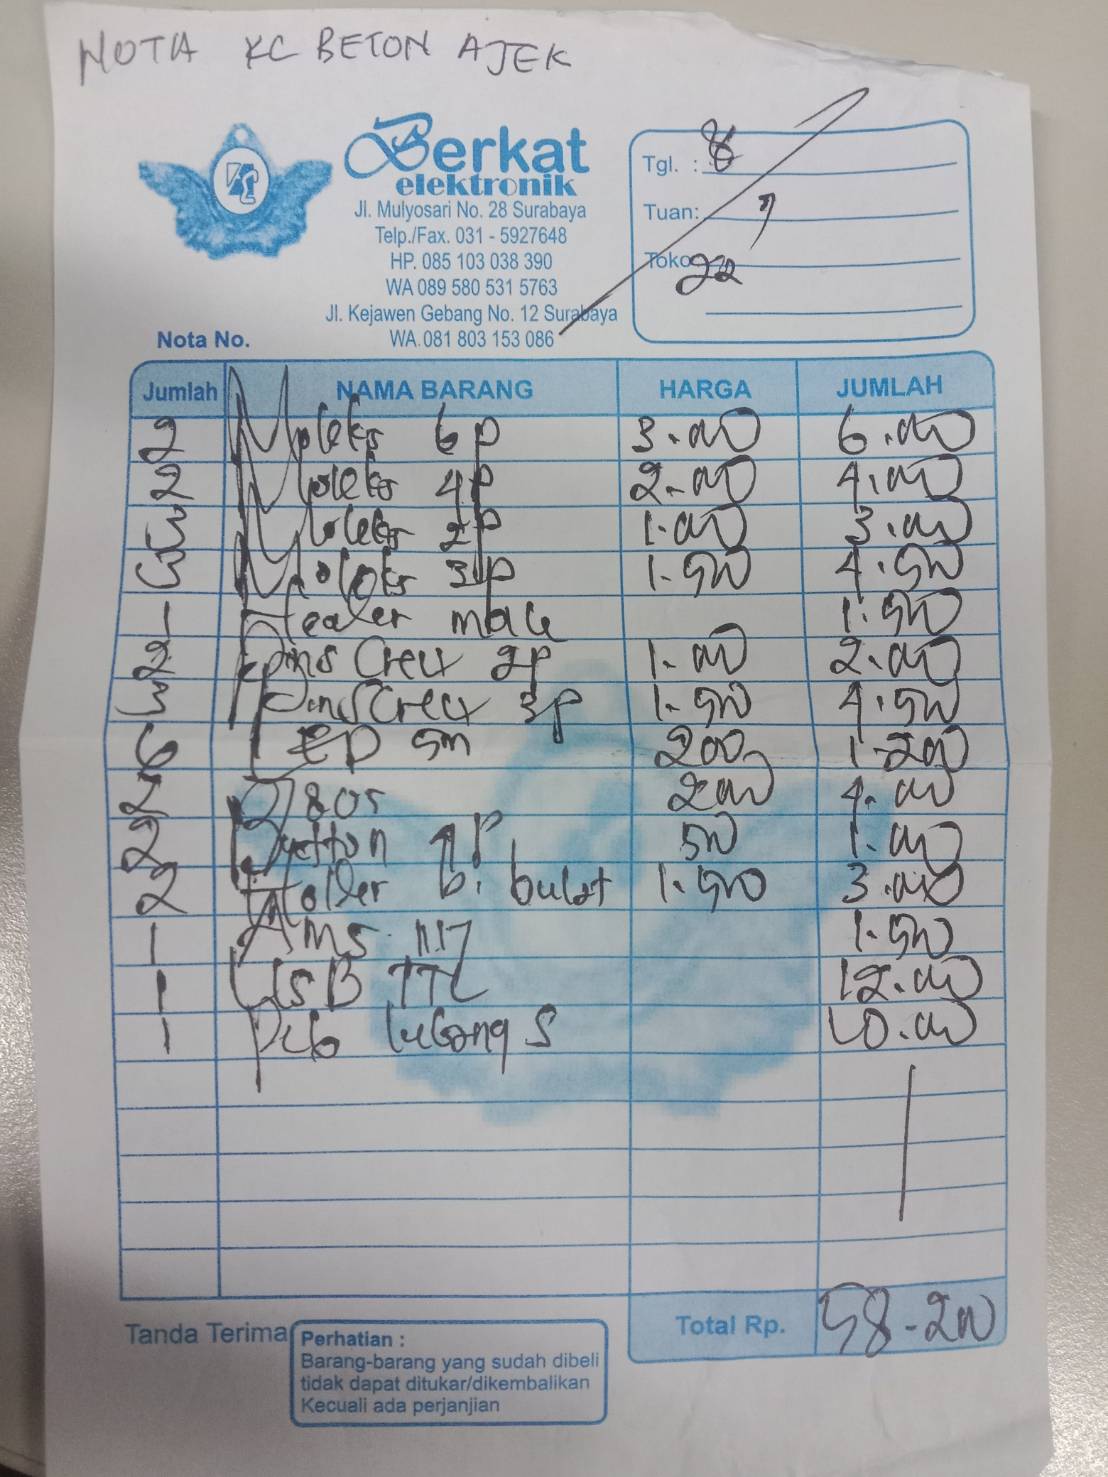 NOTA KC BETON AJEK
Berkat
elektronik
Jl. Mulyosari No. 28 Surabaya
Telp./Fax. 031 - 5927648
HP. 085 103 038 390
WA 089 580 531 5763
Jl. Kejawen Gebang No. 12 Surabaya
WA. 081 803 153 086
Tgl. : 8
Tuan: 7
Toko 22
Nota No.
Jumlah NAMA BARANG HARGA JUMLAH
2 Moleks 6p 3.000 6.000
2 Moleks 4p 2.000 4.000
3 Moleks 2p 1.000 3.000
3 Moleks 3p 1.500 4.500
1 Header male 1.500
2 Pinscrew 2p 1.000 2.000
3 Pinscrew 3p 1.500 4.500
6 Led 5m 200 1.200
2 7805 2000 4.000
2 Button 4p 500 1.000
2 Holder b. bulat 1.500 3.000
1 Ams 1117 1.500
1 USB TTL 12.000
1 Pcb lubang S 10.000
Total Rp. 58.200
Tanda Terima
Perhatian :
Barang-barang yang sudah dibeli
tidak dapat ditukar/dikembalikan
Kecuali ada perjanjian